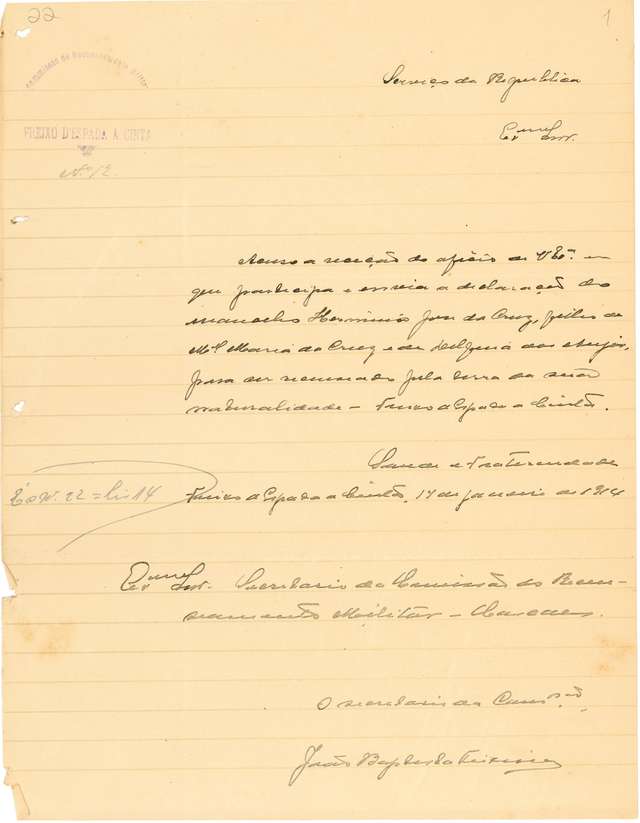 22
1
Commissão de Recenseamento Militar
FREIXO D'ESPADA Á CINTA
Nº 12.
Serviço da Republica
Exmo Snr.
Acuso a receção do oficio de V. Exª em
que participa e envia a declaração do
mancebo Herminio José da Cruz, filho de
Mel Maria da Cruz e de Delfina dos Anjos,
para ser recenseado pela terra da sua
naturalidade – Freixo d'Espada á Cinta.
Saude e Fraternidade
Freixo d'Espada á Cinta, 17 de janeiro de 1914
É o Nº 22 = 14
Exmo Snr. Secretario da Comissão do Recen-
seamento Militar –
O secretario da Comissão,
João Baptista Teixeira